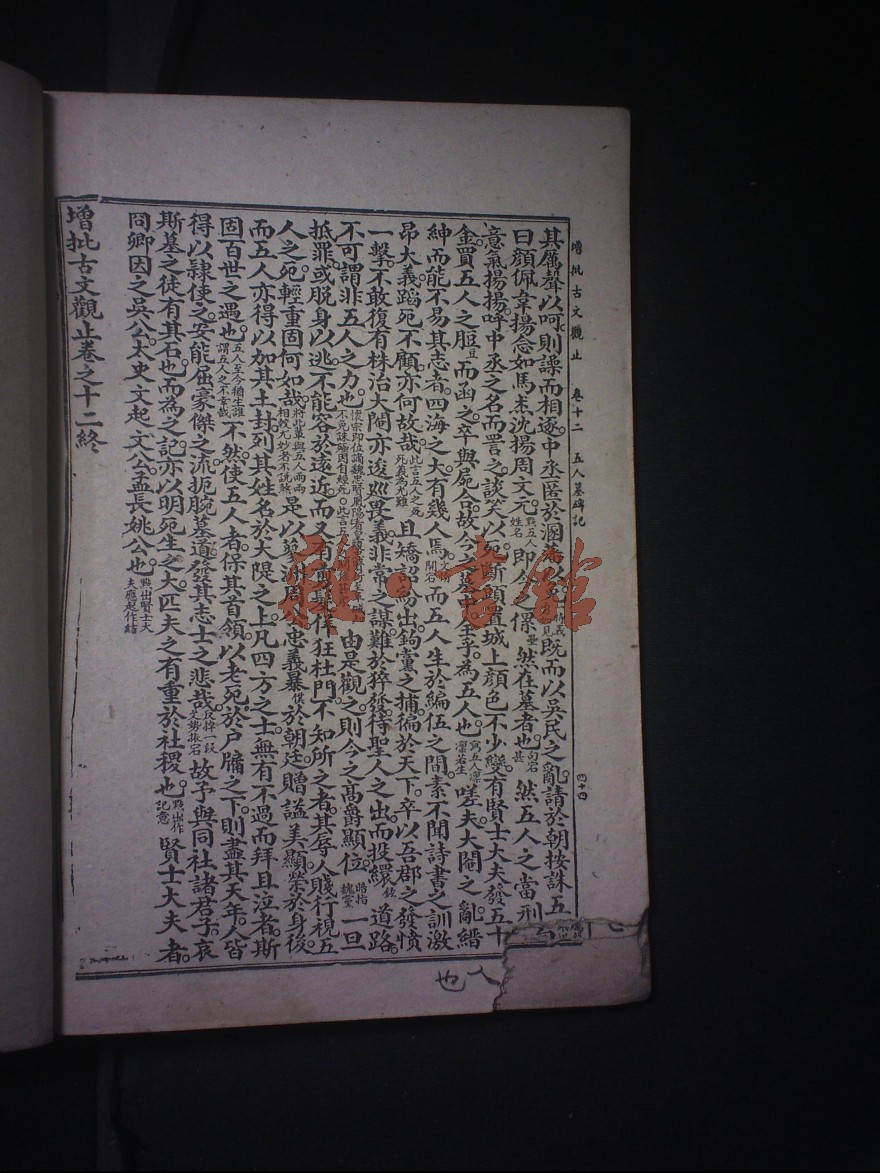 增批古文觀止 卷十二 五人墓碑記 四十四
其厲聲以呵則譟而相逐中丞匿於溷藩以免既而以吳民之亂請於朝按誅五
曰顏佩韋揚念如馬杰沈揚周文元點五人姓名即今之傫壘然在墓者也句甚然五人之當刑
意氣揚揚呼中丞之名而詈之談笑以死斷頭置城上顏色不少變有賢士大夫發五十
金買五人之脰豆而函之卒與屍合故今之墓中全乎為五人也寫五人凛凛若生嗟夫大閹之亂縉
紳而能不易其志者四海之大有幾人焉開宕而五人生於編伍之間素不聞詩書之訓激
昂大義蹈死不顧亦何故哉此言五人之死死義為尤難且矯詔紛出鉤黨之捕徧於天下卒以吾郡之發憤
一擊不敢復有株治大閹亦逡巡畏義非常之謀難於猝發待聖人之出而投繯道路
不可謂非五人之力也由是觀之則今之高爵顯位暗指魏黨一旦
抵罪或脫身以逃不能容於遠近而又有杜門不知所之者其辱人賤行視五
人之死輕重固何如哉將此輩與五人兩兩相較尤妙是以蓼洲周公忠義暴僕於朝廷贈謚美顯榮於身後
而五人亦得以加其土封列其姓名於大隄之上凡四方之士無有不過而拜且泣者斯
固百世之遇也五人至今猶生誰謂五人之不幸哉不然使五人者保其首領以老死於户牖之下則盡其天年人皆
得以隸使之安能屈豪傑之流扼腕墓道發其志士之悲哉故予與同社諸君子哀
斯墓之徒有其石也而為之記亦以明死生之大匹夫之有重於社稷也點出作記意賢士大夫者
冏卿因之吳公太史文起文公孟長姚公也點出賢士大夫應起作結
增批古文觀止卷之十二終
人
也
雜·書館